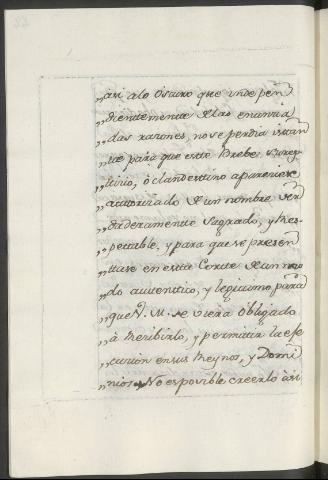 „asi alo Oscuro que inde pen
„dientemente delas enuncia
„das razones, nose perdia instan
„te para que este Brebe subrep
„ticio, ó clandestino apareciese
„autorizado de un nombre Ver
„daderamente Sagrado, y Res-
„petable, y para que se presen
„tase en esta Corte de un mo
„do autentico, y legitimo para
„que V. M. se viera Obligado
„à Recibirlo, y permitir la ese
„cucion en sus Reynos, y Domi
„nios. No es posible creerlo asi